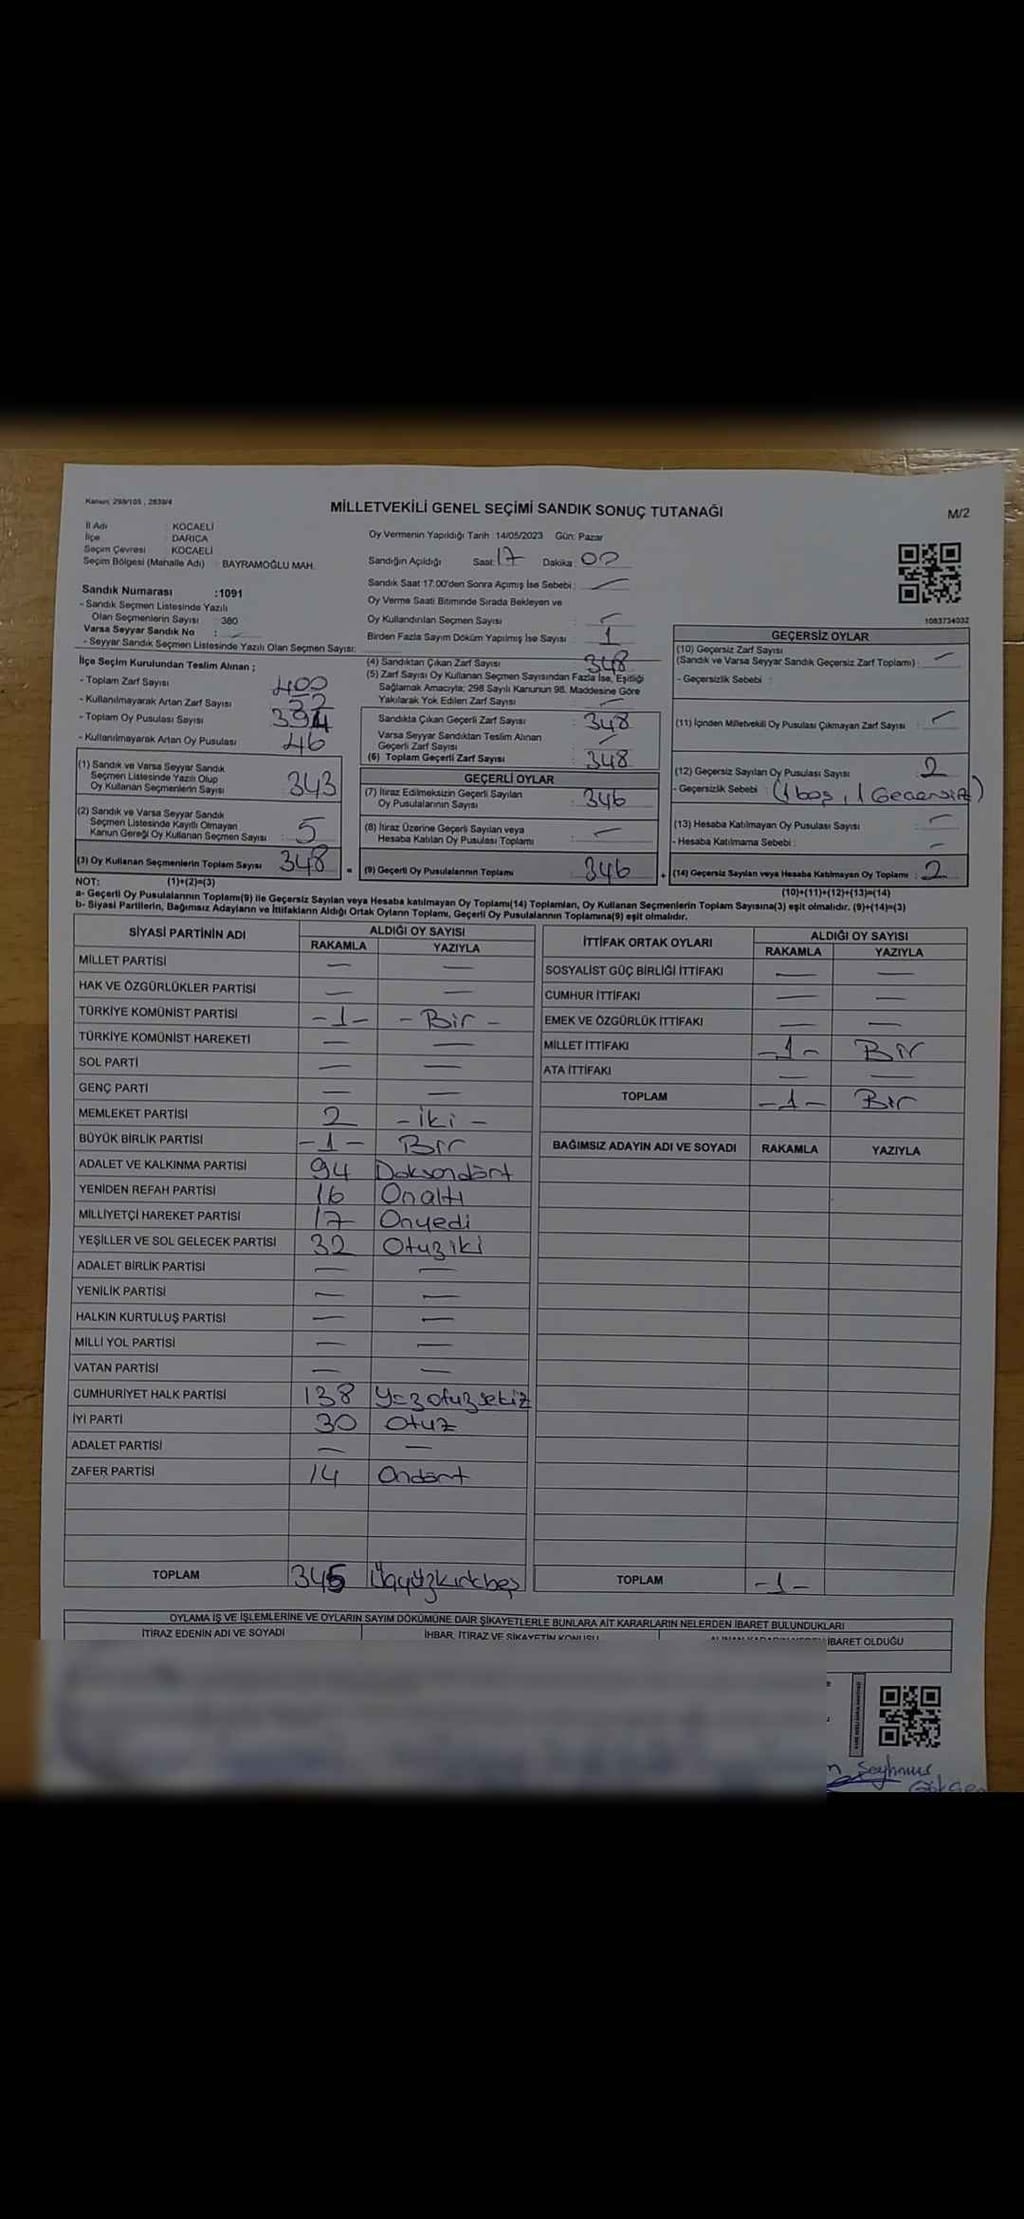 Kanun: 298/105 , 2839/4
MİLLETVEKİLİ GENEL SEÇİMİ SANDIK SONUÇ TUTANAĞI
M/2
İl Adı : KOCAELİ
İlçe : DARICA
Seçim Çevresi : KOCAELİ
Seçim Bölgesi (Mahalle Adı) : BAYRAMOĞLU MAH.
Sandık Numarası :1091
- Sandık Seçmen Listesinde Yazılı
Olan Seçmenlerin Sayısı : 380
Varsa Seyyar Sandık No :
- Seyyar Sandık Seçmen Listesinde Yazılı Olan Seçmen Sayısı:
Oy Vermenin Yapıldığı Tarih :14/05/2023 Gün: Pazar
Sandığın Açıldığı Saat: 17 Dakika : 00
Sandık Saat 17:00'den Sonra Açımış İse Sebebi : —
Oy Verme Saati Bitiminde Sırada Bekleyen ve
Oy Kullandırılan Seçmen Sayısı : —
Birden Fazla Sayım Döküm Yapılmış İse Sayısı : 1
1083734032
İlçe Seçim Kurulundan Teslim Alınan ;
- Toplam Zarf Sayısı : 400
- Kullanılmayarak Artan Zarf Sayısı :
- Toplam Oy Pusulası Sayısı : 394
- Kullanılmayarak Artan Oy Pusulası : 46
(1) Sandık ve Varsa Seyyar Sandık
Seçmen Listesinde Yazılı Olup
Oy Kullanan Seçmenlerin Sayısı : 343
(2) Sandık ve Varsa Seyyar Sandık
Seçmen Listesinde Kayıtlı Olmayan
Kanun Gereği Oy Kullanan Seçmen Sayısı : 5
(3) Oy Kullanan Seçmenlerin Toplam Sayısı : 348
(4) Sandıktan Çıkan Zarf Sayısı : 348
(5) Zarf Sayısı Oy Kullanan Seçmen Sayısından Fazla İse, Eşitliği
Sağlamak Amacıyla; 298 Sayılı Kanunun 98. Maddesine Göre
Yakılarak Yok Edilen Zarf Sayısı : —
Sandıkta Çıkan Geçerli Zarf Sayısı : 348
Varsa Seyyar Sandıktan Teslim Alınan
Geçerli Zarf Sayısı : —
(6) Toplam Geçerli Zarf Sayısı : 348
GEÇERLİ OYLAR
(7) İtiraz Edilmeksizin Geçerli Sayılan
Oy Pusulalarının Sayısı : 346
(8) İtiraz Üzerine Geçerli Sayılan veya
Hesaba Katılan Oy Pusulası Toplamı : —
(9) Geçerli Oy Pusulalarının Toplamı : 346
GEÇERSİZ OYLAR
(10) Geçersiz Zarf Sayısı
(Sandık ve Varsa Seyyar Sandık Geçersiz Zarf Toplamı) : —
- Geçersizlik Sebebi :
(11) İçinden Milletvekili Oy Pusulası Çıkmayan Zarf Sayısı : —
(12) Geçersiz Sayılan Oy Pusulası Sayısı : 2
- Geçersizlik Sebebi : (1 boş, 1 Geçersiz)
(13) Hesaba Katılmayan Oy Pusulası Sayısı : —
- Hesaba Katılmama Sebebi : —
(14) Geçersiz Sayılan veya Hesaba Katılmayan Oy Toplamı : 2
NOT: (1)+(2)=(3)
(10)+(11)+(12)+(13)=(14)
a- Geçerli Oy Pusulalarının Toplamı(9) ile Geçersiz Sayılan veya Hesaba katılmayan Oy Toplamı(14) Toplamları, Oy Kullanan Seçmenlerin Toplam Sayısına(3) eşit olmalıdır. (9)+(14)=(3)
b- Siyasi Partilerin, Bağımsız Adayların ve İttifakların Aldığı Ortak Oyların Toplamı, Geçerli Oy Pusulalarının Toplamına(9) eşit olmalıdır.
SİYASİ PARTİNİN ADI ALDIĞI OY SAYISI
RAKAMLA YAZIYLA
MİLLET PARTİSİ — —
HAK VE ÖZGÜRLÜKLER PARTİSİ — —
TÜRKİYE KOMÜNİST PARTİSİ -1- - Bir -
TÜRKİYE KOMÜNİST HAREKETİ — —
SOL PARTİ — —
GENÇ PARTİ — —
MEMLEKET PARTİSİ 2 - iki -
BÜYÜK BİRLİK PARTİSİ -1- Bir
ADALET VE KALKINMA PARTİSİ 94 Doksandört
YENİDEN REFAH PARTİSİ 16 Onaltı
MİLLİYETÇİ HAREKET PARTİSİ 17 Onyedi
YEŞİLLER VE SOL GELECEK PARTİSİ 32 Otuziki
ADALET BİRLİK PARTİSİ — —
YENİLİK PARTİSİ — —
HALKIN KURTULUŞ PARTİSİ — —
MİLLİ YOL PARTİSİ — —
VATAN PARTİSİ — —
CUMHURİYET HALK PARTİSİ 138 Yüzotuzsekiz
İYİ PARTİ 30 Otuz
ADALET PARTİSİ — —
ZAFER PARTİSİ 14 Ondört
TOPLAM 345 Üçyüzkırkbeş
İTTİFAK ORTAK OYLARI ALDIĞI OY SAYISI
RAKAMLA YAZIYLA
SOSYALİST GÜÇ BİRLİĞİ İTTİFAKI — —
CUMHUR İTTİFAKI — —
EMEK VE ÖZGÜRLÜK İTTİFAKI — —
MİLLET İTTİFAKI -1- Bir
ATA İTTİFAKI — —
TOPLAM -1- Bir
BAĞIMSIZ ADAYIN ADI VE SOYADI RAKAMLA YAZIYLA
TOPLAM -1-
OYLAMA İŞ VE İŞLEMLERİNE VE OYLARIN SAYIM DÖKÜMÜNE DAİR ŞİKAYETLERLE BUNLARA AİT KARARLARIN NELERDEN İBARET BULUNDUKLARI
İTİRAZ EDENİN ADI VE SOYADI
İHBAR, İTİRAZ VE ŞİKAYETİN KONUSU
İBARET OLDUĞU
Seyhmus